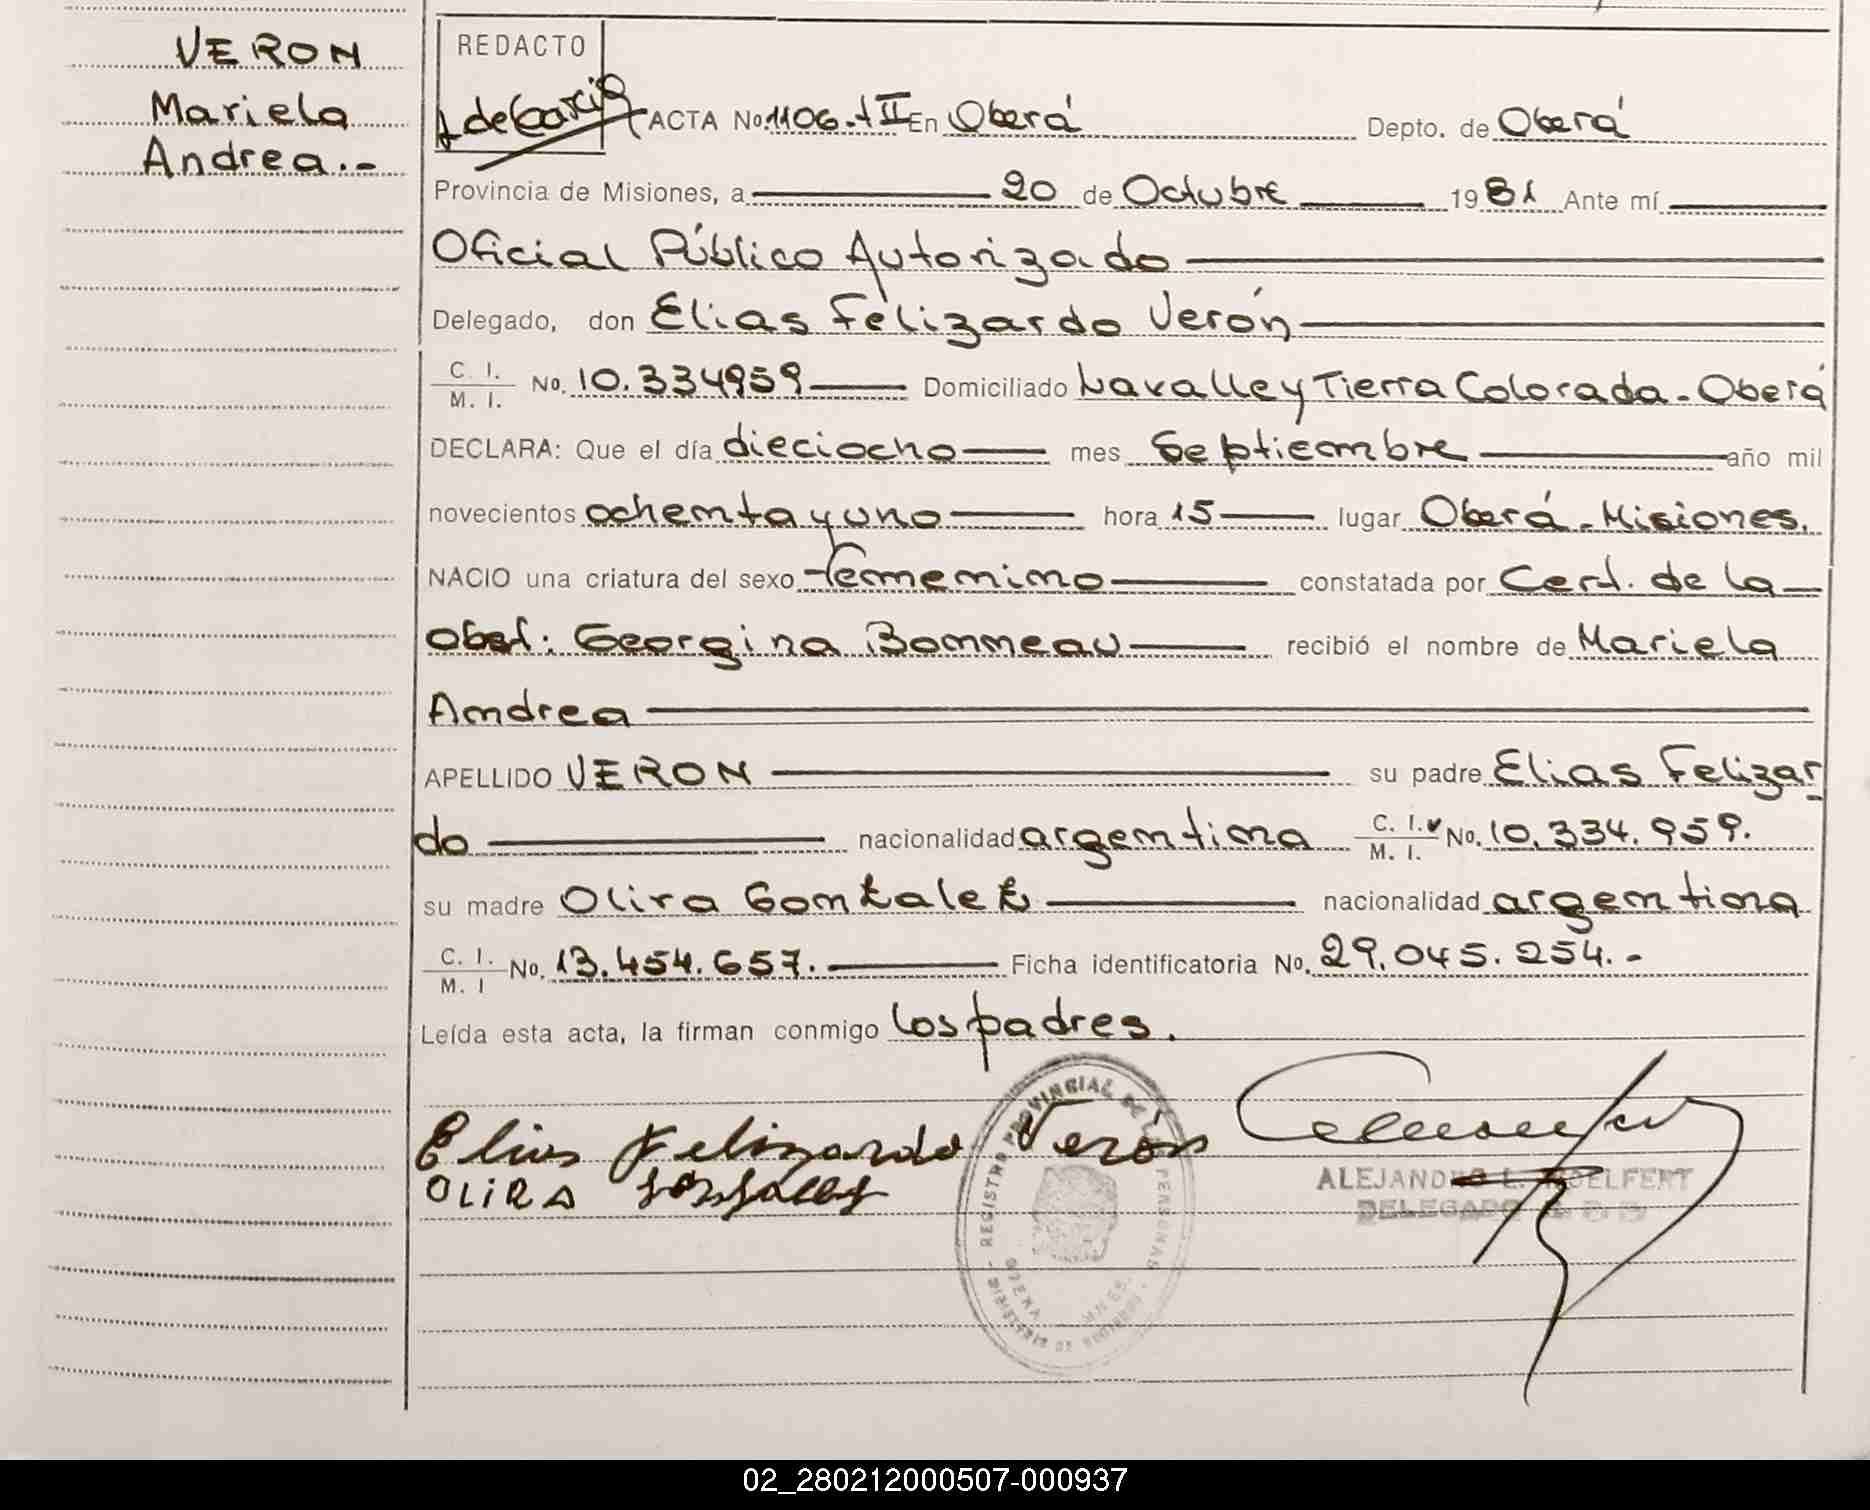 VERON
Mariela
Andrea.-
REDACTO
A de Garcia
ACTA No. 1106.-t II En Oberá Depto. de Oberá
Provincia de Misiones, a 20 de Octubre 1981 Ante mí
Oficial Público Autorizado
Delegado, don Elias Felizardo Verón
C. I. / M. I. No. 10.334959 Domiciliado Lavalle y Tierra Colorada - Oberá
DECLARA: Que el día dieciocho mes Septiembre año mil
novecientos ochenta y uno hora 15 lugar Oberá - Misiones.
NACIO una criatura del sexo femenino constatada por Cert. de la
obst: Georgina Bonneau recibió el nombre de Mariela
Andrea
APELLIDO VERON su padre Elias Felizar-
do nacionalidad argentina C. I. / M. I. No. 10.334.959.
su madre Olira Gonzalez nacionalidad argentina
C. I. / M. I No. 13.454.657. Ficha identificatoria No. 29.045.254.-
Leída esta acta, la firman conmigo los padres.
Elias Felizardo Verón
OLIRA Gonzalez
REGISTRO PROVINCIAL DE LAS PERSONAS
ALEJANDRO L. ROELFERT
DELEGADO
02_280212000507-000937